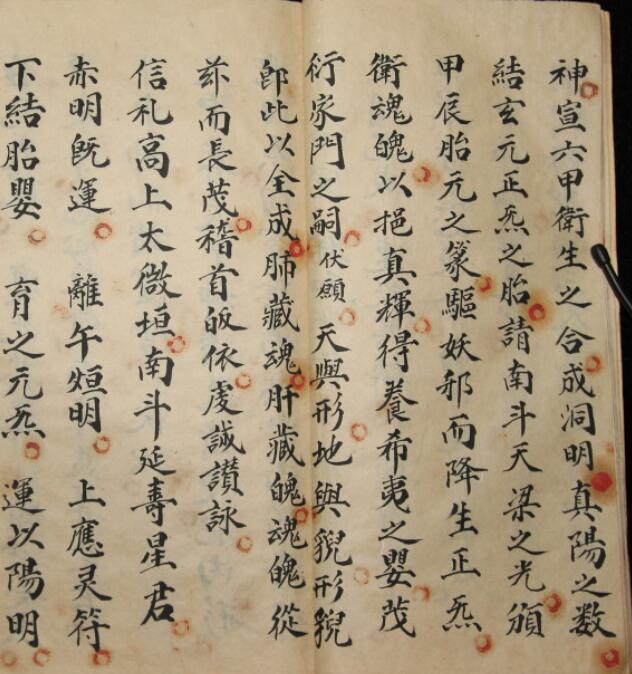 神宣六甲衛生之合成洞明真陽之数
結玄元正炁之胎請南斗天梁之光頒
甲辰胎元之篆驅妖邪而降生正炁
衛魂魄以挹真輝得養希夷之嬰茂
衍家門之嗣伏願天與形地與貎形貎
郎此以全成肺藏魂肝藏魄魂魄從
茲而長茂稽首皈依虔誠讃詠
信礼高上太微垣南斗延壽星君
赤明旣運離午烜明上應灵符
下結胎嬰育之元炁運以陽明